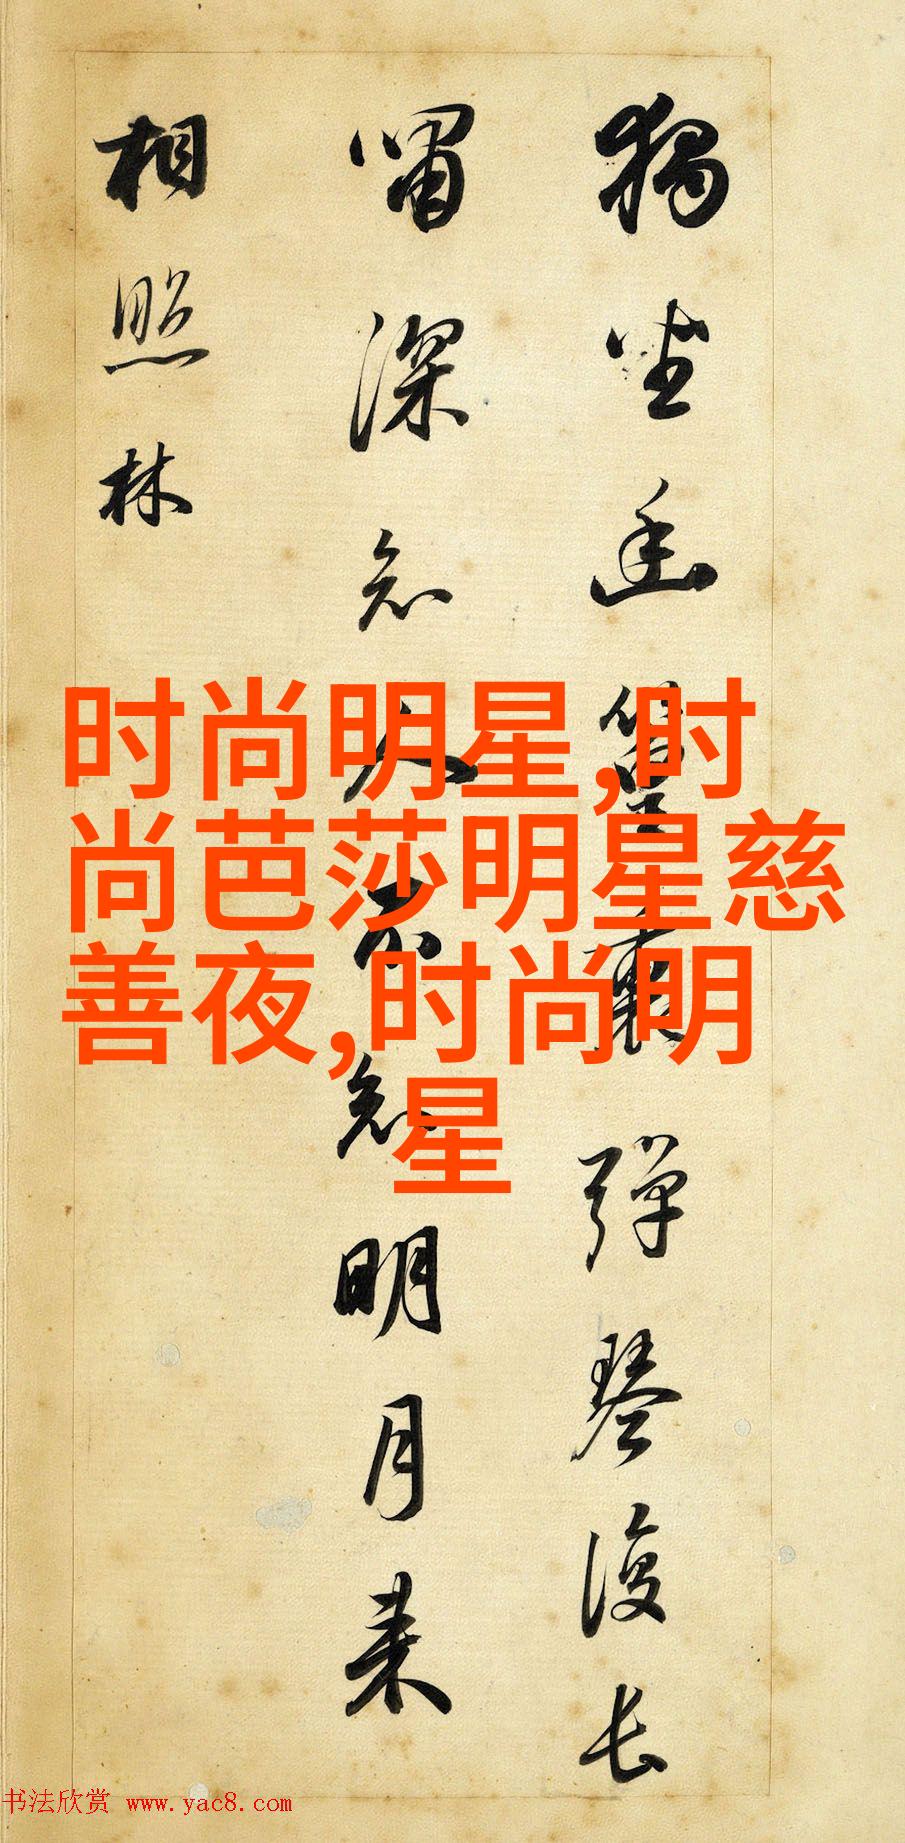 獨坐幽篁裏彈琴復長
嘯深知人不知明月来
相照林
时尚明星,时
尚芭莎明星慈
善夜,时尚明
星
书法欣赏 www.yac8.com